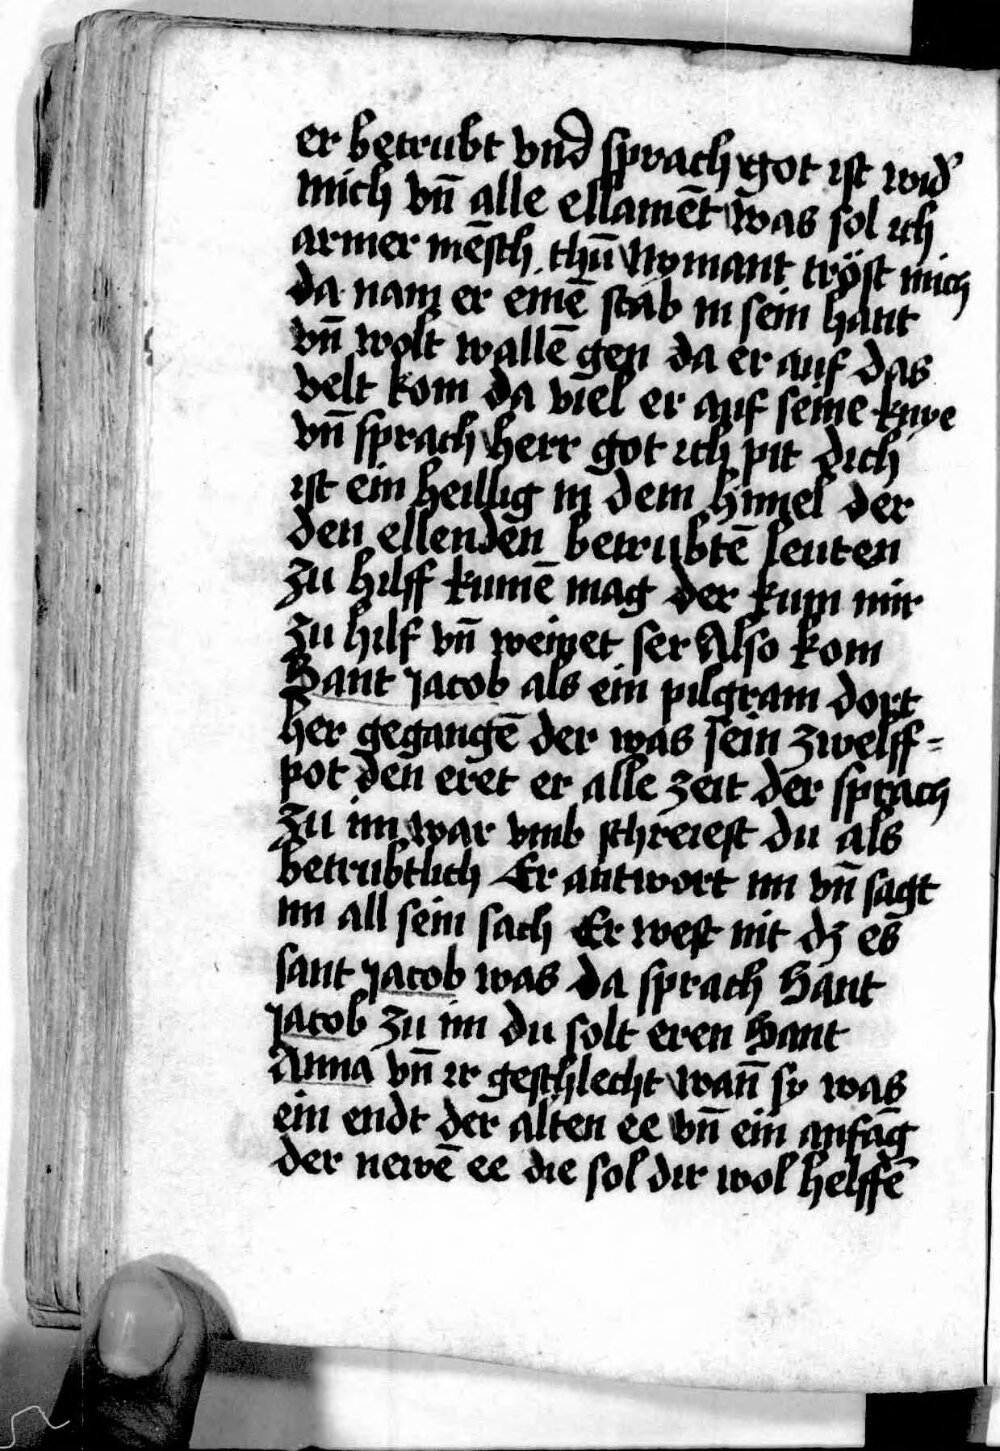 er betrubt vnd sprach got ist wid'
mich vn̄ alle ellamēt was sol ich
armer mēsch thū Nymant tröst mich
da nam er einē stab in sein hant
vn̄ wolt wallē gen da er auf das
velt kom da viel er auf seine knye
vn̄ sprach herr got ich pit dich
ist ein heillig in dem himel der
den ellenden betrubtē leuten
zu hilff kumē mag der kum mir
zu hilf vn̄ weinet ser Also kom
Sant jacob als ein pilgram dort
her gegangē der was sein zwelff=
pot den eret er alle zeit der sprach
zu im war vmb schreiest du als
betrubtlich Er antwort im vn̄ sagt
im all sein sach Er west nit dz es
sant jacob was da sprach Sant
jacob zu im du solt eren Sant
Anna vn̄ ir geschlecht wan̄ sy was
ein endt der alten ee vn̄ ein anfāg
der newē ee die sol dir wol helffē